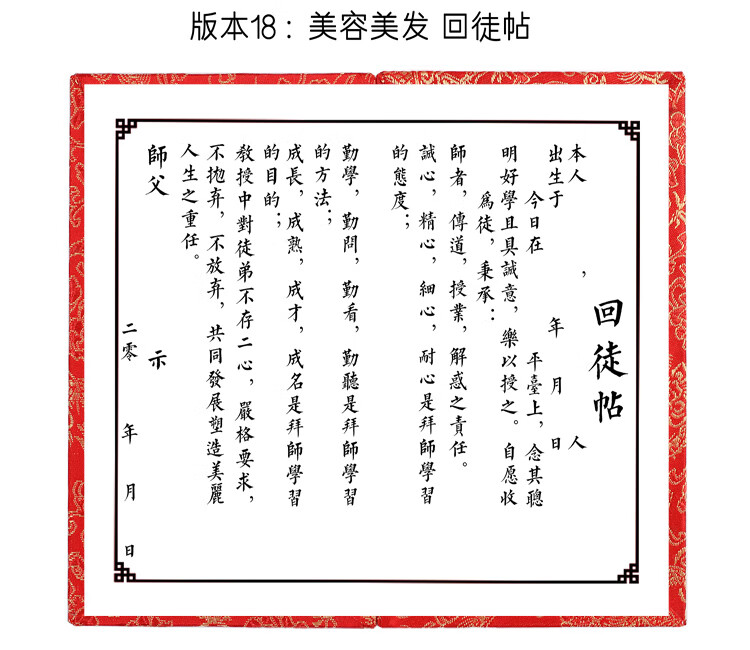 版本18：美容美发 回徒帖
回徒帖
本人 ， 人
出生于 年 月 日
今日在 平臺上，念其聰
明好學且具誠意，樂以授之。自愿收
爲徒，秉承：
師者，傳道，授業，解惑之責任。
誠心，精心，細心，耐心是拜師學習
的態度；
勤學，勤問，勤看，勤聽是拜師學習
的方法；
成長，成熟，成才，成名是拜師學習
的目的；
教授中對徒弟不存二心，嚴格要求，
不抛弃，不放弃，共同發展塑造美麗
人生之重任。
師父 示
二零 年 月 日